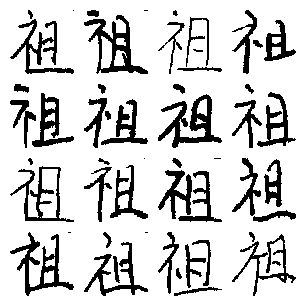 祖祖祖祖
祖祖祖祖
祖祖祖祖
祖祖祖祖